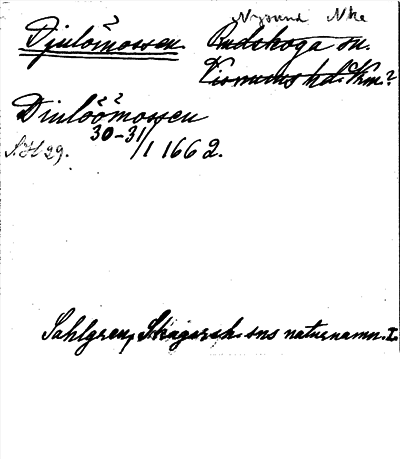 Nysund Nke
Djulömossen Rudskoga sn.
Visnums hd. Vrm?
Diulöömossen
30-31/1 1662.
29.
Sahlgren, Skagersh. sns naturnamn. I.